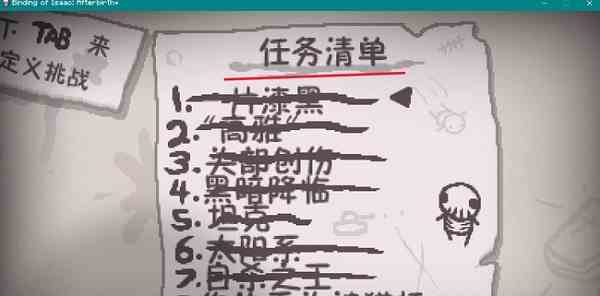 Binding of Isaac: Afterbirth+
下: TAB 来
定义挑战
任务清单
1. 一片漆黑
2. "高雅"
3. 头部创伤
4. 黑暗降临
5. 坦克
6. 太阳系
7. 自杀之王